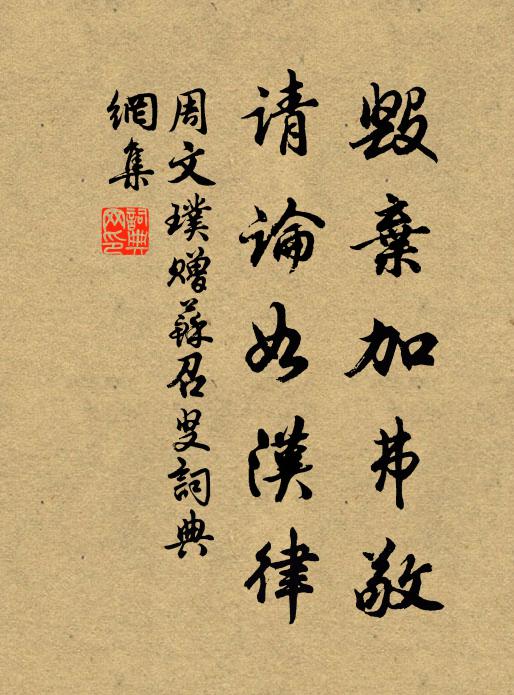 毀棄加弗敬
请論如漢律
周文璞赠蘇召叟詞典
網集
詞典
网印